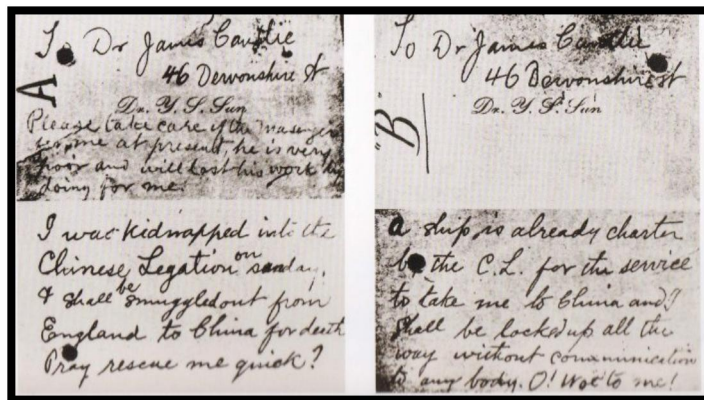 To Dr James Cantlie
46 Devonshire St
A
Dr. Y. S. Sun
Please take care of the messenger
for me at present, he is very
poor and will lost his work by
doing for me.
I was kidnapped into the
Chinese Legation on sunday,
& shall be smuggled out from
England to China for death
Pray rescue me quick?
To Dr James Cantlie
46 Devonshire St
"B"
Dr. Y. S. Sun
A ship is already charter
by the C.L. for the service
to take me to China and I
shall be locked up all the
way without communication
to any body. O! Woe to me!